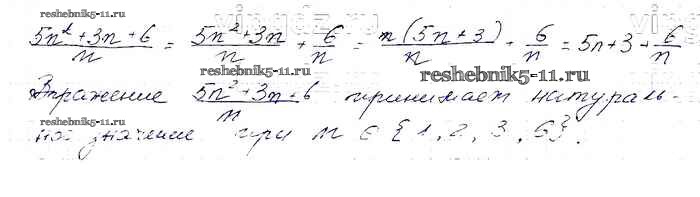 reshebnik5-11.ru
(5n²+3n+6)/n = (5n²+3n)/n + 6/n = n(5n+3)/n + 6/n = 5n+3+6/n
reshebnik5-11.ru
reshebnik5-11.ru
Выражение (5n²+3n+6)/n принимает натураль-
reshebnik5-11.ru
ное значение при n ∈ {1, 2, 3, 6}.
reshebnik5-11.ru